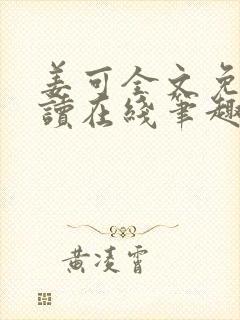 姜可全文免
讀在綫筆趣
黄凌霄